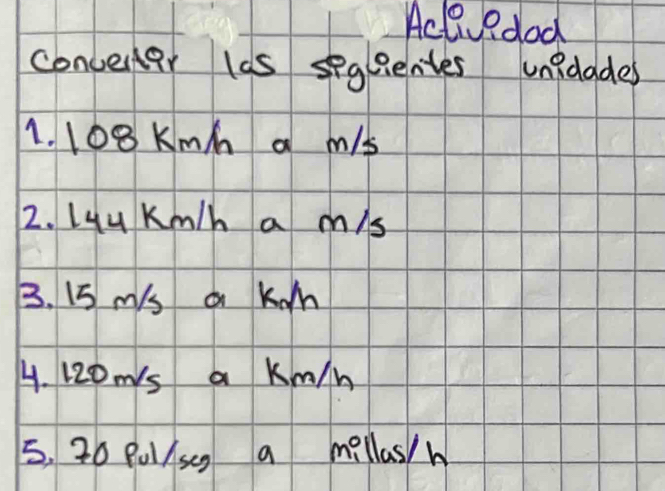 Actividad
Convertir las siguientes unidades
1. 108 Km/h a m/s
2. 144 Km/h a m/s
3. 15 m/s a Km/h
4. 120 m/s a Km/h
5. 70 Pul/seg a millas/h